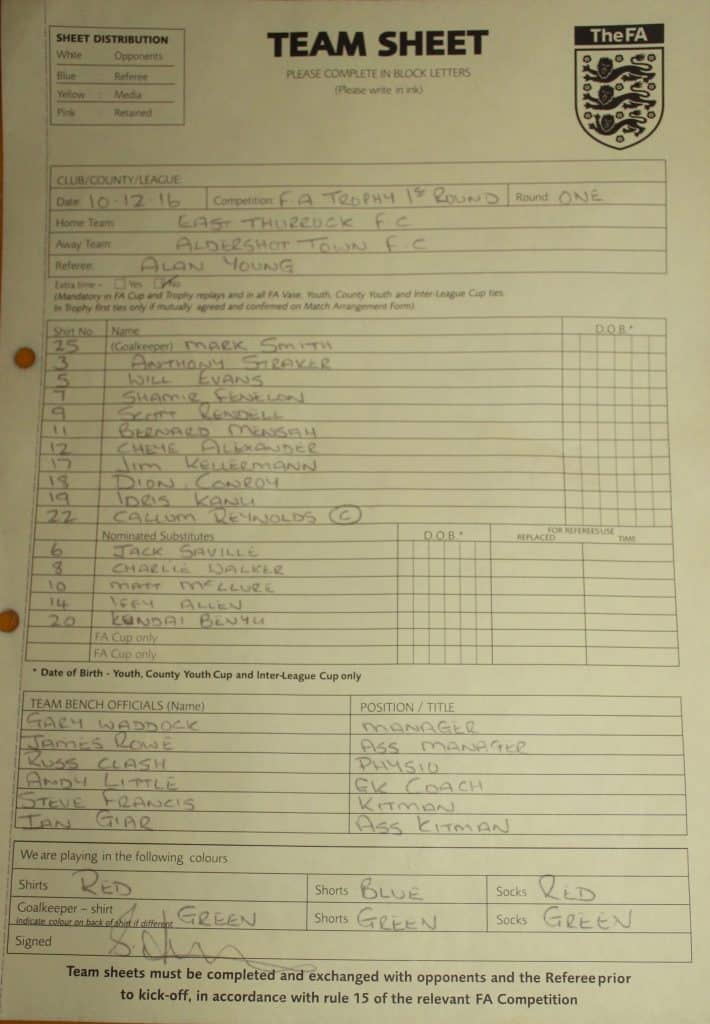 SHEET DISTRIBUTION
White : Opponents
Blue : Referee
Yellow : Media
Pink : Retained
TEAM SHEET
PLEASE COMPLETE IN BLOCK LETTERS
(Please write in ink)
The FA
CLUB/COUNTY/LEAGUE:
Date: 10.12.16 Competition: F.A TROPHY 1st ROUND Round: ONE
Home Team: EAST THURROCK F.C
Away Team: ALDERSHOT TOWN F.C
Referee: ALAN YOUNG
Extra time – Yes No
(Mandatory in FA Cup and Trophy replays and in all FA Vase, Youth, County Youth and Inter-League Cup ties.
In Trophy first ties only if mutually agreed and confirmed on Match Arrangement Form).
Shirt No. Name D.O.B.*
25 (Goalkeeper) MARK SMITH
3 ANTHONY STRAKER
5 WILL EVANS
7 SHAMIR FENELON
9 SCOTT RENDELL
11 BERNARD MENSAH
12 CHEYE ALEXANDER
17 JIM KELLERMANN
18 DION CONROY
19 IDRIS KANU
22 CALLUM REYNOLDS (C)
Nominated Substitutes D.O.B.* FOR REFEREES USE
REPLACED TIME
6 JACK SAVILLE
8 CHARLIE WALKER
10 MATT McCLURE
14 IFFY ALLEN
20 KUNDAI BENYU
FA Cup only
FA Cup only
* Date of Birth - Youth, County Youth Cup and Inter-League Cup only
TEAM BENCH OFFICIALS (Name) POSITION / TITLE
GARY WADDOCK MANAGER
JAMES ROWE ASS MANAGER
RUSS CLASH PHYSIO
ANDY LITTLE GK COACH
STEVE FRANCIS KITMAN
IAN GIAR ASS KITMAN
We are playing in the following colours
Shirts RED Shorts BLUE Socks RED
Goalkeeper – shirt GREEN Shorts GREEN Socks GREEN
Indicate colour on back of shirt if different
Signed
Team sheets must be completed and exchanged with opponents and the Referee prior
to kick-off, in accordance with rule 15 of the relevant FA Competition